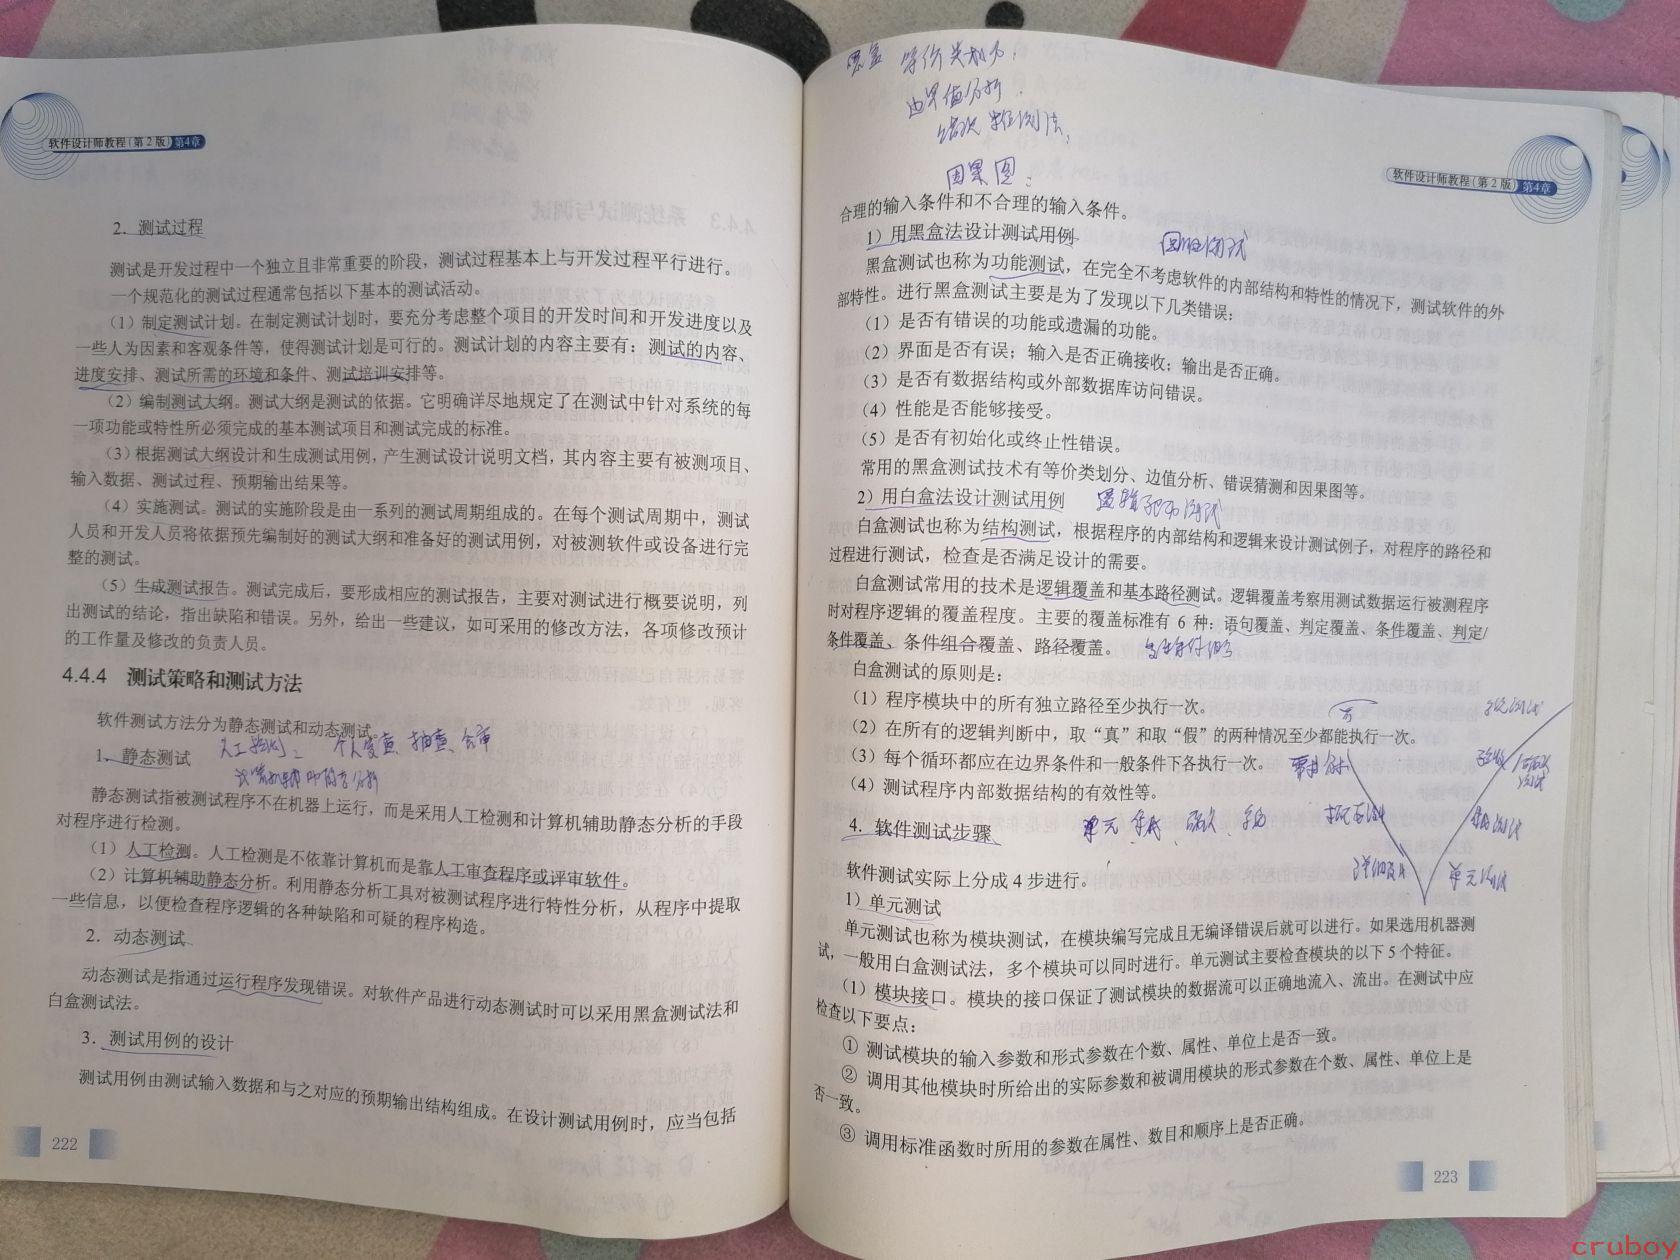 软件设计师教程(第2版)第4章
2．测试过程
测试是开发过程中一个独立且非常重要的阶段，测试过程基本上与开发过程平行进行。
一个规范化的测试过程通常包括以下基本的测试活动。
（1）制定测试计划。在制定测试计划时，要充分考虑整个项目的开发时间和开发进度以及
一些人为因素和客观条件等，使得测试计划是可行的。测试计划的内容主要有：测试的内容、
进度安排、测试所需的环境和条件、测试培训安排等。
（2）编制测试大纲。测试大纲是测试的依据。它明确详尽地规定了在测试中针对系统的每
一项功能或特性所必须完成的基本测试项目和测试完成的标准。
（3）根据测试大纲设计和生成测试用例，产生测试设计说明文档，其内容主要有被测项目、
输入数据、测试过程、预期输出结果等。
（4）实施测试。测试的实施阶段是由一系列的测试周期组成的。在每个测试周期中，测试
人员和开发人员将依据预先编制好的测试大纲和准备好的测试用例，对被测软件或设备进行完
整的测试。
（5）生成测试报告。测试完成后，要形成相应的测试报告，主要对测试进行概要说明，列
出测试的结论，指出缺陷和错误。另外，给出一些建议，如可采用的修改方法，各项修改预计
的工作量及修改的负责人员。
4.4.4 测试策略和测试方法
软件测试方法分为静态测试和动态测试。
1．静态测试
个人复查、抽查、会审
静态测试指被测试程序不在机器上运行，而是采用人工检测和计算机辅助静态分析的手段
对程序进行检测。
（1）人工检测。人工检测是不依靠计算机而是靠人工审查程序或评审软件。
（2）计算机辅助静态分析。利用静态分析工具对被测试程序进行特性分析，从程序中提取
一些信息，以便检查程序逻辑的各种缺陷和可疑的程序构造。
2．动态测试
动态测试是指通过运行程序发现错误。对软件产品进行动态测试时可以采用黑盒测试法和
白盒测试法。
3．测试用例的设计
测试用例由测试输入数据和与之对应的预期输出结构组成。在设计测试用例时，应当包括
222
黑盒 等价类划分
边界值分析
错误猜测法
因果图
软件设计师教程(第2版)第4章
合理的输入条件和不合理的输入条件。
1）用黑盒法设计测试用例
黑盒测试也称为功能测试，在完全不考虑软件的内部结构和特性的情况下，测试软件的外
部特性。进行黑盒测试主要是为了发现以下几类错误：
（1）是否有错误的功能或遗漏的功能。
（2）界面是否有误；输入是否正确接收；输出是否正确。
（3）是否有数据结构或外部数据库访问错误。
（4）性能是否能够接受。
（5）是否有初始化或终止性错误。
常用的黑盒测试技术有等价类划分、边值分析、错误猜测和因果图等。
2）用白盒法设计测试用例
白盒测试也称为结构测试，根据程序的内部结构和逻辑来设计测试例子，对程序的路径和
过程进行测试，检查是否满足设计的需要。
白盒测试常用的技术是逻辑覆盖和基本路径测试。逻辑覆盖考察用测试数据运行被测程序
时对程序逻辑的覆盖程度。主要的覆盖标准有 6 种：语句覆盖、判定覆盖、条件覆盖、判定/
条件覆盖、条件组合覆盖、路径覆盖。
白盒测试的原则是：
（1）程序模块中的所有独立路径至少执行一次。
（2）在所有的逻辑判断中，取“真”和取“假”的两种情况至少都能执行一次。
（3）每个循环都应在边界条件和一般条件下各执行一次。
（4）测试程序内部数据结构的有效性等。
系统测试
需求分析
概要设计
集成测试
详细设计
单元测试
4．软件测试步骤
单元 集成
软件测试实际上分成 4 步进行。
1）单元测试
单元测试也称为模块测试，在模块编写完成且无编译错误后就可以进行。如果选用机器测
试，一般用白盒测试法，多个模块可以同时进行。单元测试主要检查模块的以下 5 个特征。
（1）模块接口。模块的接口保证了测试模块的数据流可以正确地流入、流出。在测试中应
检查以下要点：
① 测试模块的输入参数和形式参数在个数、属性、单位上是否一致。
② 调用其他模块时所给出的实际参数和被调用模块的形式参数在个数、属性、单位上是
否一致。
③ 调用标准函数时所用的参数在属性、数目和顺序上是否正确。
223
cruboy